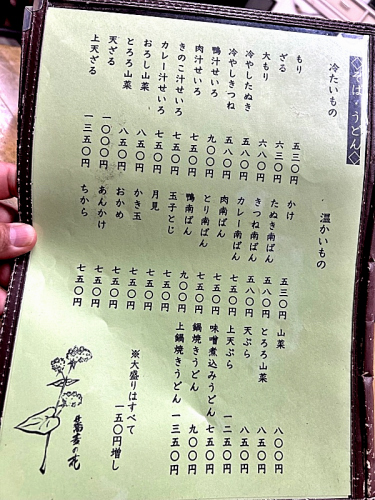 ◇そば・うどん◇
冷たいもの
もり 五三〇円
ざる 六三〇円
大もり 六八〇円
冷やしたぬき 五八〇円
冷やしきつね 五八〇円
鴨汁せいろ 九〇〇円
肉汁せいろ 七五〇円
きのこ汁せいろ 七五〇円
カレー汁せいろ 七五〇円
おろし山菜 七五〇円
とろろ山菜 八五〇円
天ざる 一〇〇〇円
上天ざる 一三五〇円
温かいもの
かけ 五三〇円
たぬき南ばん 五八〇円
きつね南ばん 五八〇円
カレー南ばん 七五〇円
肉南ばん 七五〇円
とり南ばん 七五〇円
鴨南ばん 九〇〇円
玉子とじ 七五〇円
月見 七五〇円
かき玉 七五〇円
おかめ 七五〇円
あんかけ 七五〇円
ちから 七五〇円
山菜 八〇〇円
とろろ山菜 八五〇円
天ぷら 八五〇円
上天ぷら 一二五〇円
味噌煮込みうどん 七五〇円
鍋焼きうどん 九〇〇円
上鍋焼きうどん 一三五〇円
※大盛りはすべて
一五〇円増し
蕎麦の花